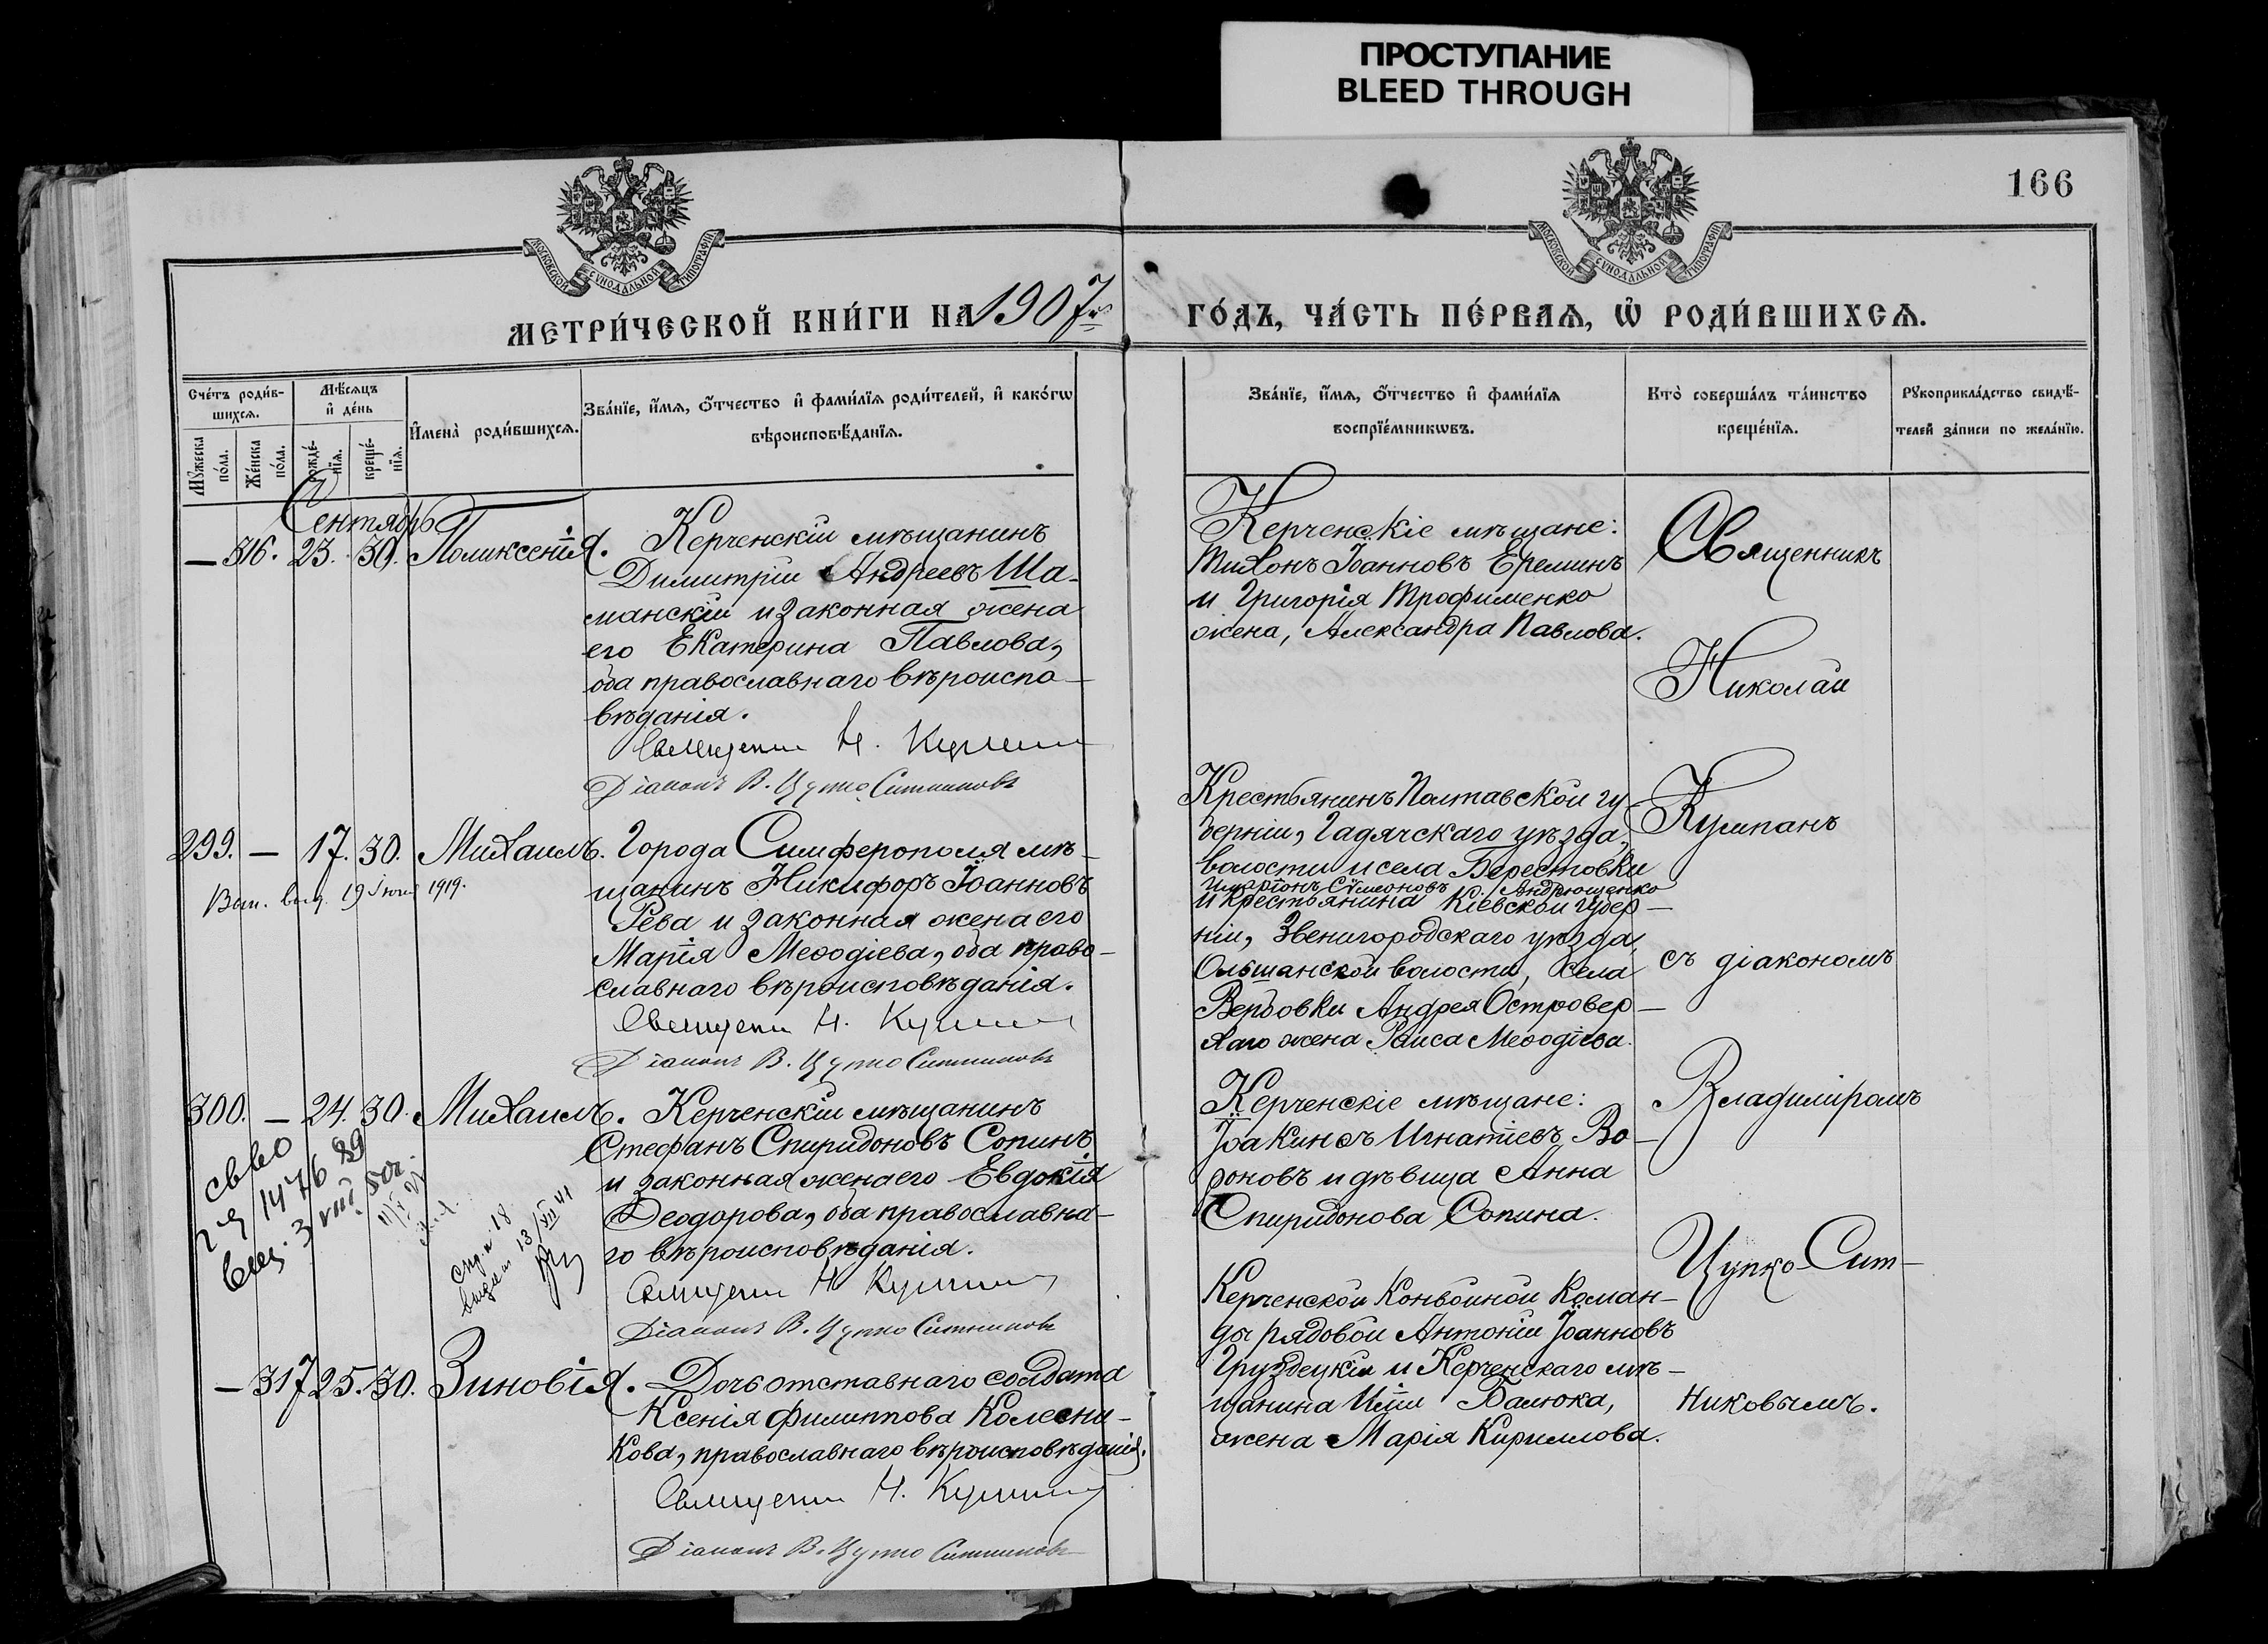 ПРОСТУПАНИЕ
BLEED THROUGH
166
МОСКОВСКОЙ СѴНОДАЛЬНОЙ ТИПОГРАФІИ
МОСКОВСКОЙ СѴНОДАЛЬНОЙ ТИПОГРАФІИ
МЕТРИ́ЧЕСКОЙ КНИ́ГИ НА 1907 й
ГО́ДЪ, ЧА́СТЬ ПЕ́РВАѦ, Ѡ҆ РОДИ́ВШИХСѦ.
Сче́тъ роди́в-
шихсѧ.
Мꙋжеска по́ла.
Же́нска по́ла.
Мѣ́сѧцъ
и҆ де́нь
рожде́-
нїѧ.
креще́-
нїѧ.
И҆мена̀ роди́вшихсѧ.
Зва́нїе, и҆́мѧ, ѻ҆́тчество и҆ фами́лїѧ роди́телей, и҆ како́гѡ
вѣроисповѣ́данїѧ.
Зва́нїе, и҆́мѧ, ѻ҆́тчество и҆ фами́лїѧ
воспрїе́мникѡвъ.
Кто̀ соверша́лъ та́инство
креще́нїѧ.
Рꙋкоприкла́дство свидѣ́-
телей за́писи по жела́нїю.
Сентябрь
— 316. 23. 30. Поликсенія.
Керченскій мѣщанинъ
Димитрій Андреевъ Ша-
манскій и законная жена
его Екатерина Павлова,
оба православнаго вѣроиспо-
вѣданія.
Священникъ Н. Кумпанъ
Діаконъ В. Цупко Ситниковъ
Керченскіе мѣщане:
Тихонъ Іоанновъ Ереминъ
и Григорія Трофименко
жена, Александра Павлова.
Священникъ
Николай
Кумпанъ
съ діакономъ
Владиміромъ
Цупко-Сит-
никовымъ.
299. — 17. 30. Михаилъ.
Вып. выд. 19 Іюня 1919.
Города Симферополя мѣ-
щанинъ Никифоръ Іоанновъ
Рева и законная жена его
Марія Меѳодіева, оба право-
славнаго вѣроисповѣданія.
Священникъ Н. Кумпанъ
Діаконъ В. Цупко Ситниковъ
Крестьянинъ Полтавской гу-
берніи, Гадячскаго уѣзда,
волости и села Берестовки
Иларіонъ Сѵмеоновъ Андрющенко
и крестьянина Кіевской губер-
ніи, Звенигородскаго уѣзда,
Ольшанской волости, села
Вербовки Андрея Островер-
хаго жена Раиса Меѳодіева.
300. — 24. 30. Михаилъ.
св во
1476
вып. 3
выдан 13/VII
Керченскій мѣщанинъ
Стефанъ Спиридоновъ Сопинъ
и законная жена его Евдокія
Ѳеодорова, оба православна-
го вѣроисповѣданія.
Священникъ Н. Кумпанъ
Діаконъ В. Цупко Ситниковъ
Керченскіе мѣщане:
Іоакинѳъ Игнатіевъ Во-
роновъ и дѣвица Анна
Спиридонова Сопина.
— 317 25. 30. Зиновія.
Дочь отставнаго солдата
Ксенія Филиппова Колесни-
кова, православнаго вѣроисповѣданія.
Священникъ Н. Кумпанъ
Діаконъ В. Цупко Ситниковъ
Керченской Конвойной Коман-
ды рядовой Антоній Іоанновъ
Груздецкій и Керченскаго мѣ-
щанина Иліи Балюка,
жена Марія Кириллова.